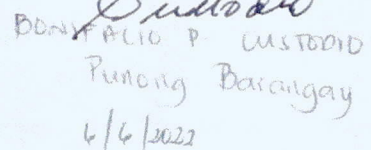 Custodio
BONIFACIO P. CUSTODIO
Punong Barangay
6/6/2022